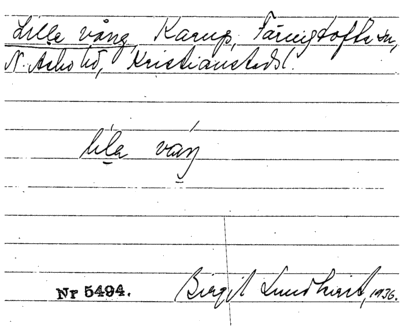 Lille vång, Karup, Färingtofta sn,
N. Åsbo hd, Kristianstads l.
lila váŋ
Nr 5494. Birgit Lundkvist, 1936.